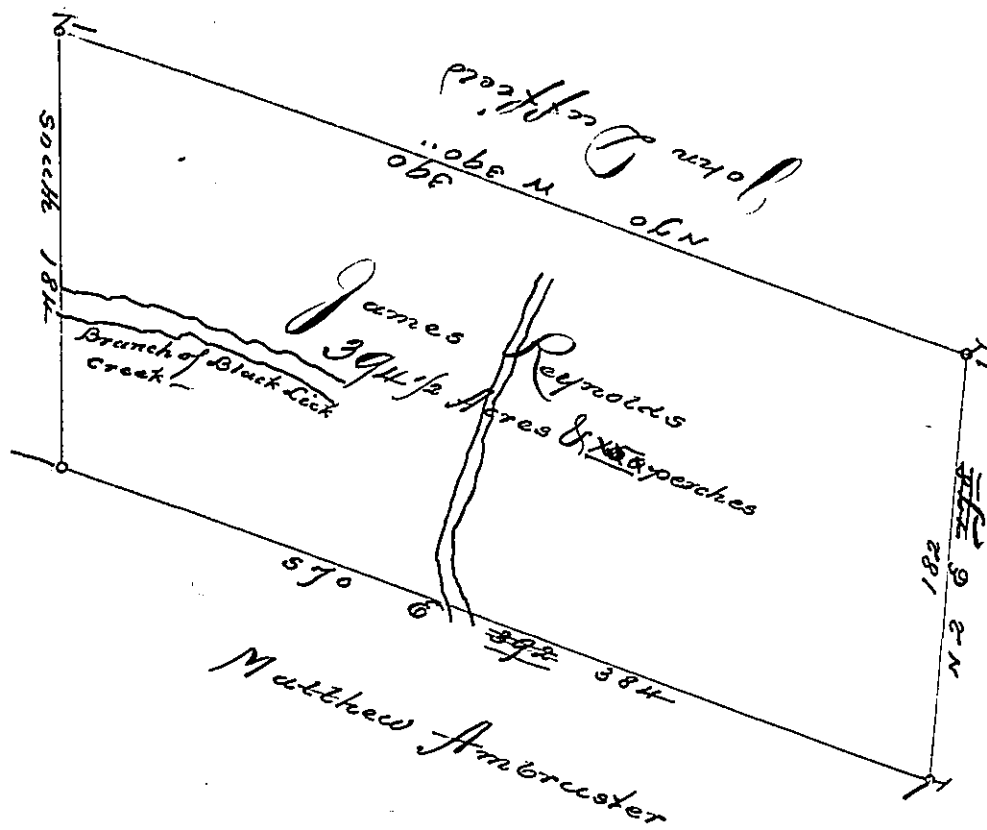 John Duffield
N 70 W 390..
390
South 184
James Reynolds
394 1/2 Acres & perches
Branch of Black Lick
Creek
N 2 E
182
S 70 E 392 384
Matthew Ambruster